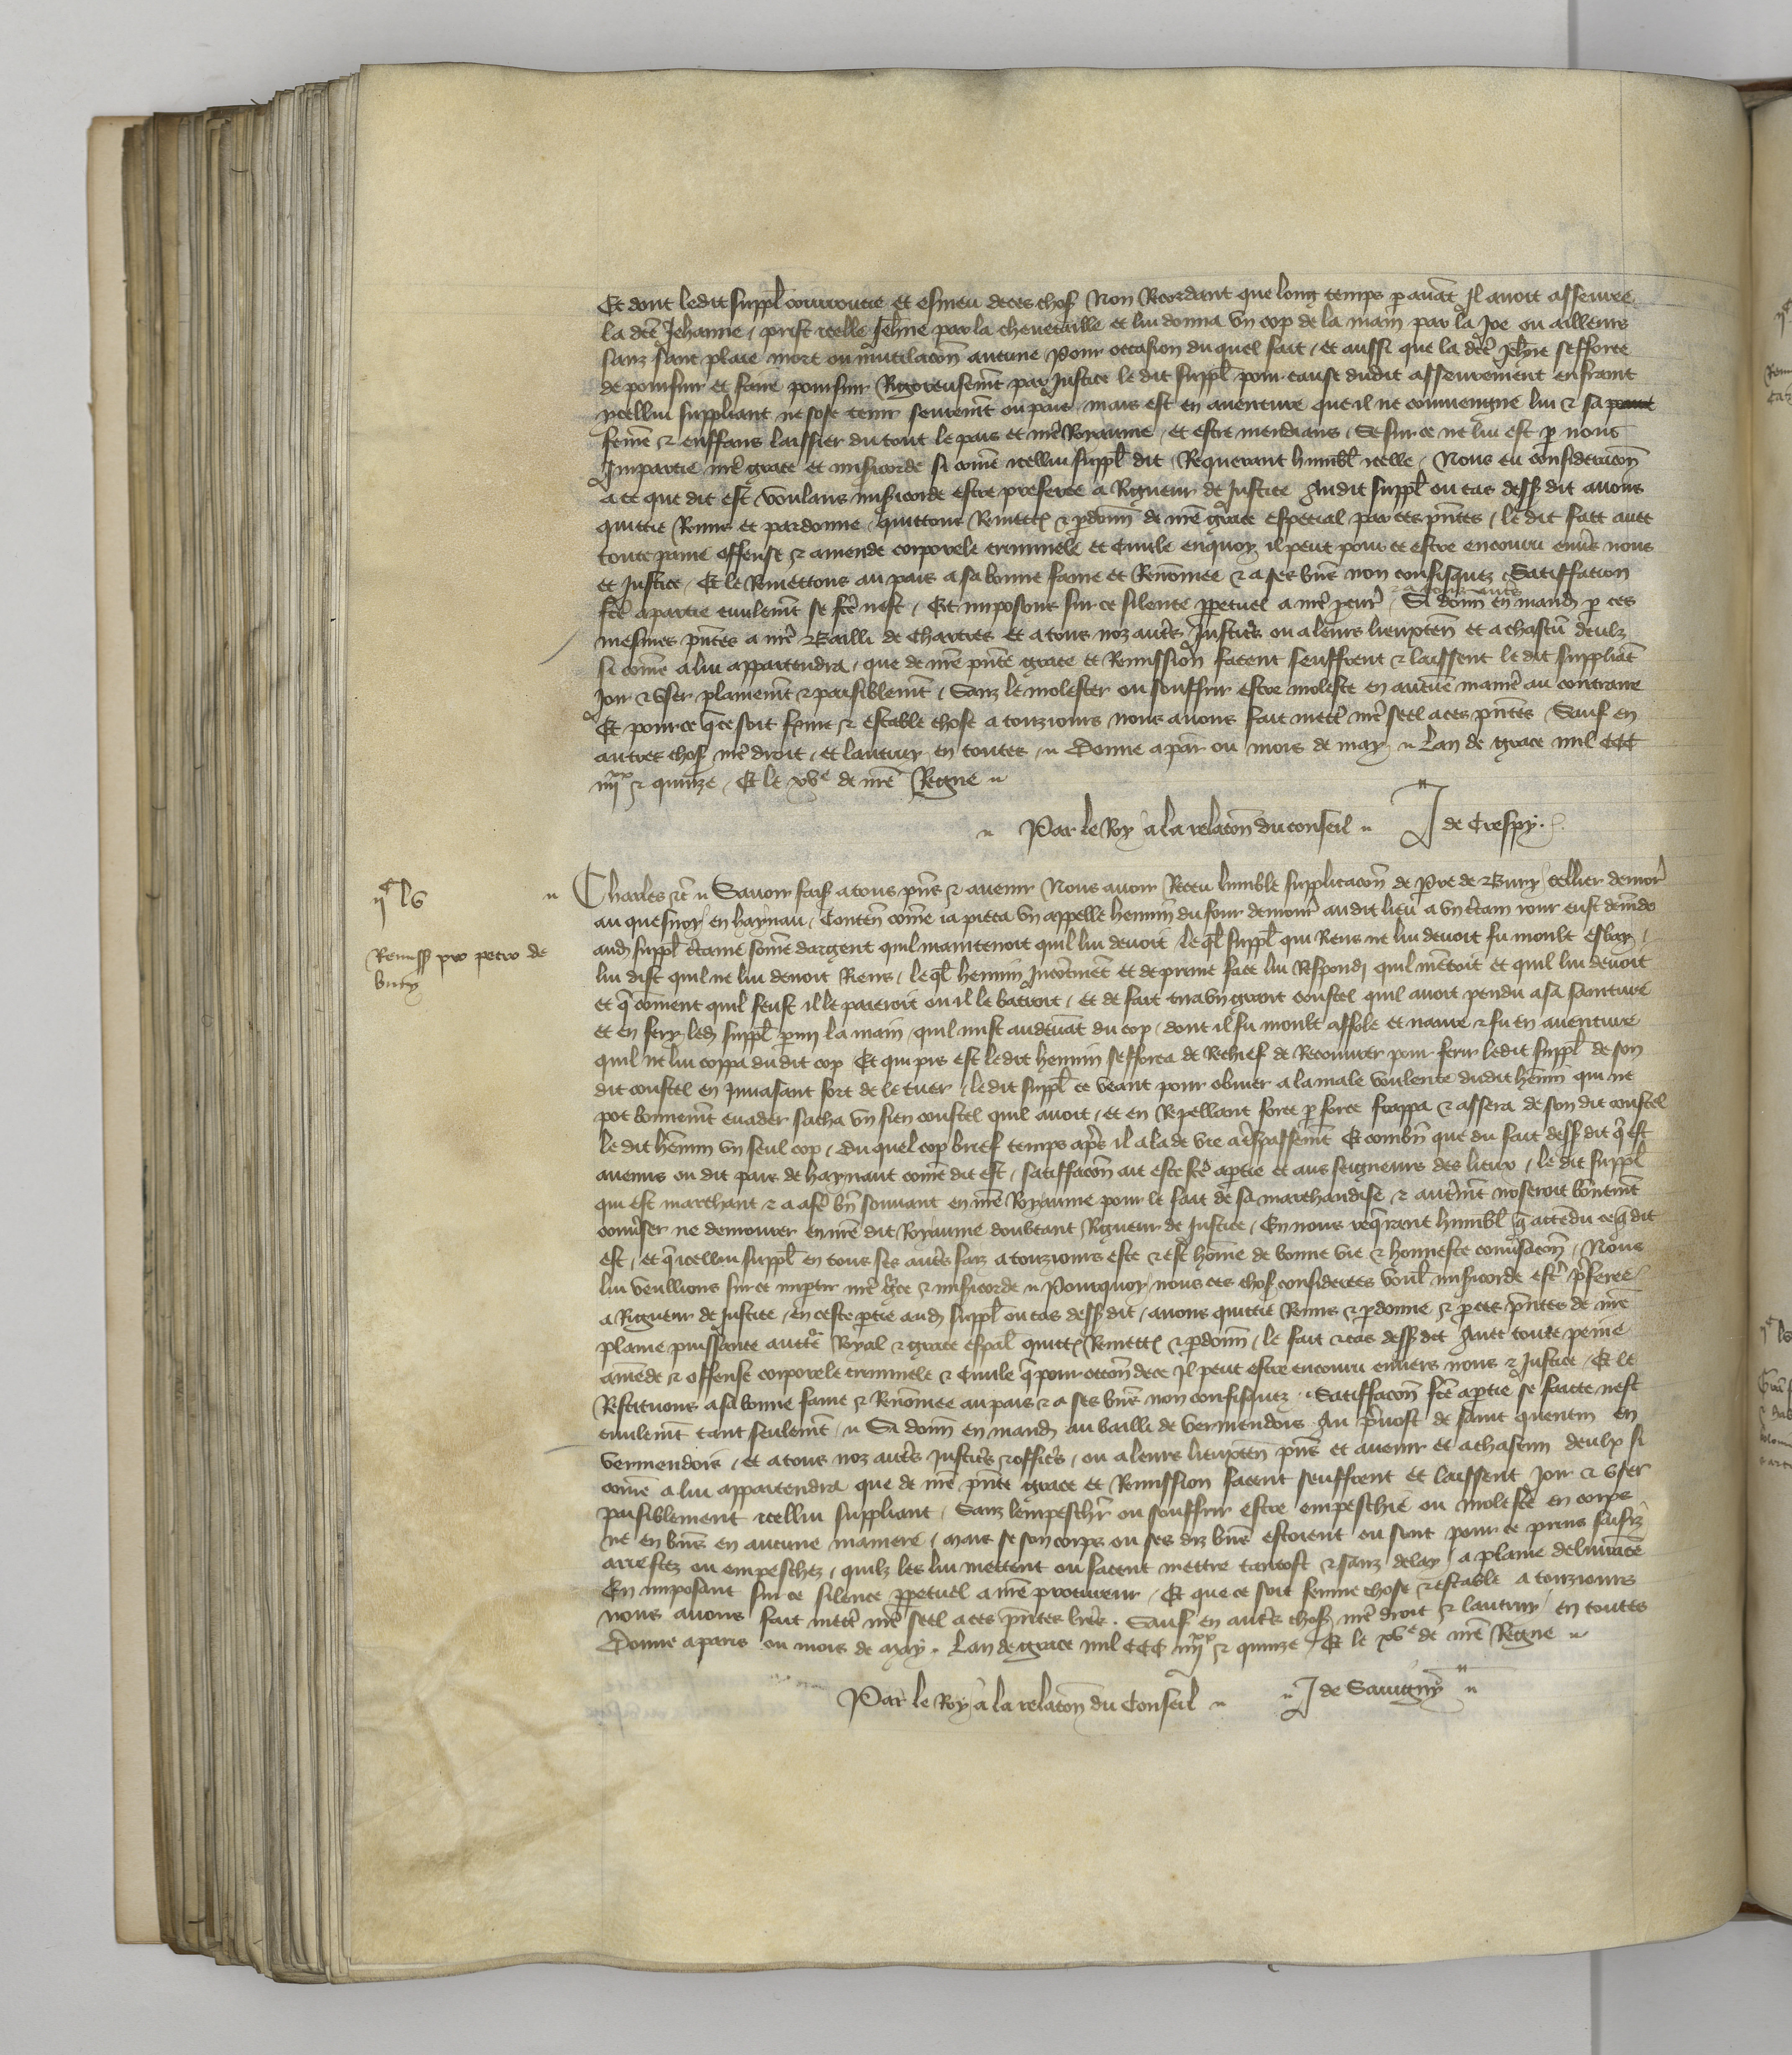 Et dont ledit suppl̃ courroucie et esmeu de ces chos̃ Non Recordant que long temps p̱ auãt Il auoit asseuree
la dc̃e Jehanne / prist icelle Jeh̃ne par la cheuecaille et lui donna vn cop de la main par la Joe ou ailleurs
sanz sanc plaie mort ou mutilacõn aucune Pour occasion duquel fait / et aussi que la dc̃e Jeh̃ne sefforce
de poursuir et faire poursuir Rigoreusemt̃ par Justice le dit suppl̃ pour cause dudit asseurement enfraint
ycellui suppliant ne sose tenir seuremt̃ ou pais / mais est en auenture que il ne conuiengne lui & sa
fem̃e & enffans laissier du tout le pais et nr̃e Royaume / et estre mendians / Se sur ce ne lui est p̱ nous
Impartie nr̃e grace et misẽicorde si com̃e icellui suppl̃ dit / Requerant humbl̃ icelle / Nous eu consideracõn
a ce que dit est voulans misẽicorde estre preferee a Rigueur de Justice Audit suppl̃ ou cas dess̃ dit auons
quittie Remis et pardonne / quittons Remett̃ & p̱donn̄ de nr̃e grace especial par ces pñtes / le dit fait auec
toute paine offense & amende corporele criminele et Ciuile en quoy il peut pour ce estre encouru enũs nous
et Justice / Et le Remettons au pais a sa bonne fame et Renom̃ee & a ses biẽs non confisquez / Satiffation
fc̃e a partie ciuilemt̃ se fc̃e nest / Et imposons sur ce silence p̱petuel a nr̃e ꝓcur̃ / Si donn̄ en mand̃ p̱ ces
mesmes pñtes a nr̃e Bailli de Chartres et a tous noz aut̃s Justic̃s ou a leurs lieuxten̄ et a chascũ deulz
si com̃e a lui appartendra / que de nr̃e pñte grace et Remission facent seuffrent & laissent le dit suppliãt
Joir & vser plainemt̃ & paisiblemt̃ / Sanz le molester ou souffrir estre moleste en aucũe manie᷑ au contraire
Et pour ce q̃ ce soit ferme & estable chose a touziours nous auons fait mett̃ nr̃e seel a ces pñtes Sauf en
autres chos̃ nr̃e droit / et lautruy en toutes / Donne a par̃ ou mois de may / Lan de grace mil CCC
iiijxx & quinze / Et le xve de nr̃e Regne
Par le Roy a la relacõn du conseil J de Crespy.
iic lv Charles &c̃ Sauoir fais̃ a tous pñs & auenir Nous auoir Receu humble supplicacõn de Pr̃e de Bury / cellier demor̃
au quesnoy en haynau / Conten̄ com̃e ia pieca vn appelle hennin du four demour̃ audit lieu a vn c̃tain iour eust demãde
aud̃ suppl̃ c̃taine som̃e dargent quil maintenoit quil lui deuoit / leq̃l suppl̃ qui Riens ne lui deuoit fu moult esbay /
Remiss̃ pro petro de
bury
lui dist quil ne lui deuoit Riens / leq̃l hennin Incõtinẽt et de prime face lui Respond̃ quil mẽtoit et quil lui deuoit
et q̃ coment quil feust il le paieroit ou il le batroit / et de fait tira vn grant coustel quil auoit pendu a sa sainture
et en fery led̃ suppl̃ p̱mi la main / quil mist audeuãt du cop / dont il fu moult affole et naure & fu en auenture
quil ne lui coppa du dit cop Et qui pis est ledit hennin sefforca de Rechief de Recouurer pour ferir ledit suppl̃ de son
dit coustel en Inuasant fort de le tuer / le dit suppl̃ ce veant pour obuier a la male voulente dudit hẽnin qui ne
pot bonnemt̃ euader sacha vn sien coustel quil auoit / et en Repellant force p̱ force frappa & assena de son dit coustel
le dit hẽnin vn seul cop / du quel cop brief temps ap̃s il ala de vie a t̃spassemt̃ Et combñ que du fait dess̃ dit q̃ est
auenus ou dit pais de haynaut com̃e dit est / satiffacõn ait este fc̃e a p̱tie et aus seigneurs des lieux / le dit suppl̃
qui est marchant & a afẽ bñ souuant en nr̃e Royaume pour le fait de sa marchandise & aut̃mt̃ noseroit bõnemt̃
conũser ne demourer en nr̃e dit Royaume doubtant Rigueur de Justice / En nous req̃rant humbl̃ q̃ attẽdu ce q̃ dit
est / et q̃ icellui suppl̃ en tous ses aut̃s faiz a touziours este & est hom̃e de bonne vie & honneste conũsacõn / Nous
lui veullions sur ce imp̱tir nr̃e g̃ce & misẽicorde Pourquoy nous ces chos̃ considerees voul̃ misẽicorde est̃ p̃feree
a Rigueur de Justice / en ceste p̱tie aud̃ suppl̃ ou cas dess̃ dit / auons quittie Remis & p̱donne & p̱ ces pñtes de nr̃e
plaine puissance auctc̃e Royal & grace esp̃al quitt̃ Remett̃ & p̱donn̄ / le fait & cas dess̃ dit Auec toute peine
amẽde & offense corporele criminele & Ciuile q̃ pour occõn de ce Il peut estre encouru enuers nous & Justice / Et le
Restituons a sa bonne fame & Renom̃ee au pais & a ses biẽs non confisquez / Satiffacõn fc̃e a p̱tie se faicte nest
ciuilemt̃ tant seulemt̃ Si donn̄ en mand̃ au bailli de vermendois Au p̃uost de saint quentin en
vermendois / et a tous noz aut̃s Justic̃s & offic̃s / ou a leurs lieuxten̄ pñs et auenir et a chascun deulx si
com̃e a lui appartendra que de nr̃e pñte grace et Remission facent seuffrent et laissent Joir & vser
paisiblement icellui suppliant / Sanz lempeschr̃ ou souffrir estre empeschie ou moleste en corps
ne en biẽs en aucune maniere / mais se son corps ou ses diz biẽs estoient ou sont pour ce prins saisiz
arrestez ou empeschez / quilz les lui mettent ou facent mettre tantost & sanz delay / a plaine deliurãce
En imposant sur ce silence p̱petuel a nr̃e procureur / Et que ce soit ferme chose & estable a touziours
nous auons fait mett̃ nr̃e seel a ces pñtes lr̃es . Sauf en aut̃s chos̃ nr̃e droit & lautruy en toutes
Donne a paris ou mois de may . Lan de grace mil CCC iiijxx & quinze / Et le xve de nr̃e Regne
Par le Roy a la relacõn du Conseil J de Sauigny